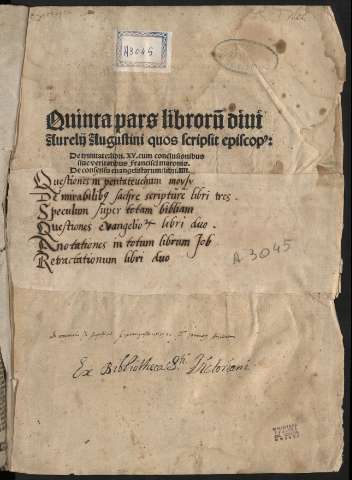 A3045
Quinta pars librorũ diui
Aurelij Augustini quos scripsit episcopꝰ:
De trinitate libri. XV. cum conclusionibus
siue veritatibus Francisci maronis.
De consensu euangelistarum libri. IIII.
Questiones in pentateucham moysi
De mirabilibꝫ sacre scripture libri tres.
Speculum super totam bibliam
Questiones evangelioꝝ libri duo.
Anotationes in totum librum Job
Retractationum libri duo
A 3045
Ex Bibliotheca Sti Victorini